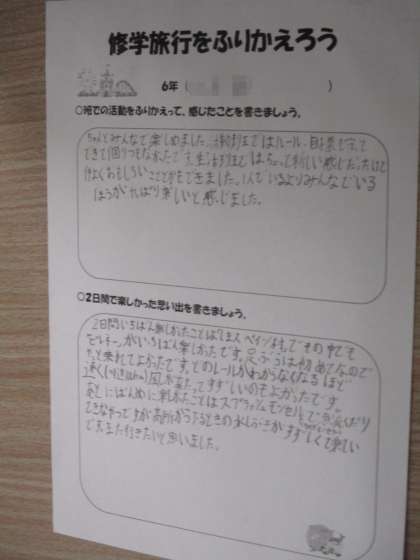 修学旅行をふりかえろう
6年（ ）
○班での活動をふりかえって、感じたことを書きましょう。
ちゃんとみんなで楽しめました。活動班ではルール、目標を守って
できて1個 もなかたです。生活班では ちょっと新しい感じだったけど
仲よくおもしろいことができました。1人でいるよりみんなでいる
ほうがやっぱり楽しいと感じました。
○2日間で楽しかった思い出を書きましょう。
2日間いちばん楽しかたことは スペイン村です。その中でも
ピレネーがいちばん楽しかたです。 は初めてなので
と乗れてよかたです。とのレールかわからなくなるほど
速く 風があたってすずしいのもよかったです。
あとにばんめに楽しかたことはスプラッシュモンセルです。 くだり
ですが高所から うるときの水しぶきがすずしくて楽しい
です。また行きたいと思いました。